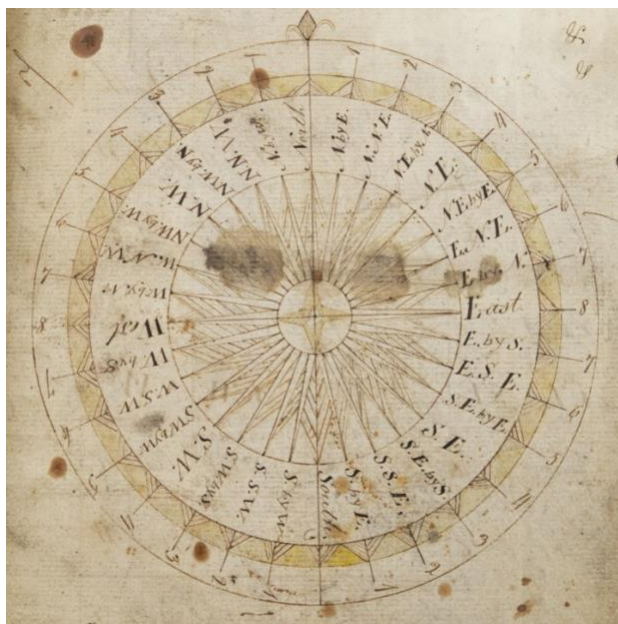 North
N by E.
N. N. E.
N.E. by N.
N. E.
N.E. by E.
E. N. E.
E by N.
East
E. by S.
E. S. E.
S. E. by E.
S. E.
S. E. by S.
S. S. E.
S. by E.
South
S by W.
S. S W.
S W by S
S. W.
S W by W
W. S. W
W by S
West
W by N
W. N. W
N W by W
N. W.
N W. by N
N N W
N by W
1
2
3
4
5
6
7
8
7
6
5
4
3
2
1
1
2
3
4
5
6
7
8
7
6
5
4
3
2
1